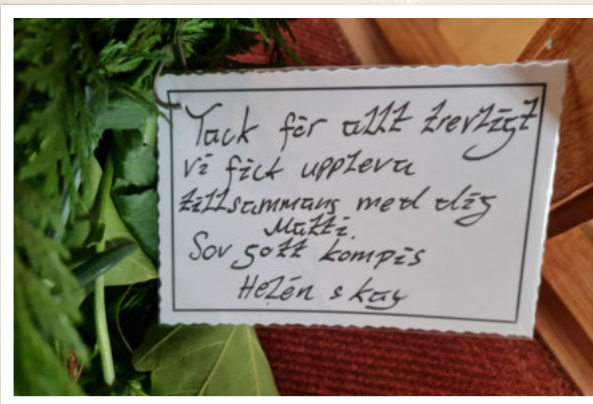 Tack för allt trevligt
vi fick uppleva
tillsammans med dig
Matti.
Sov gott kompis
Helén & Kay